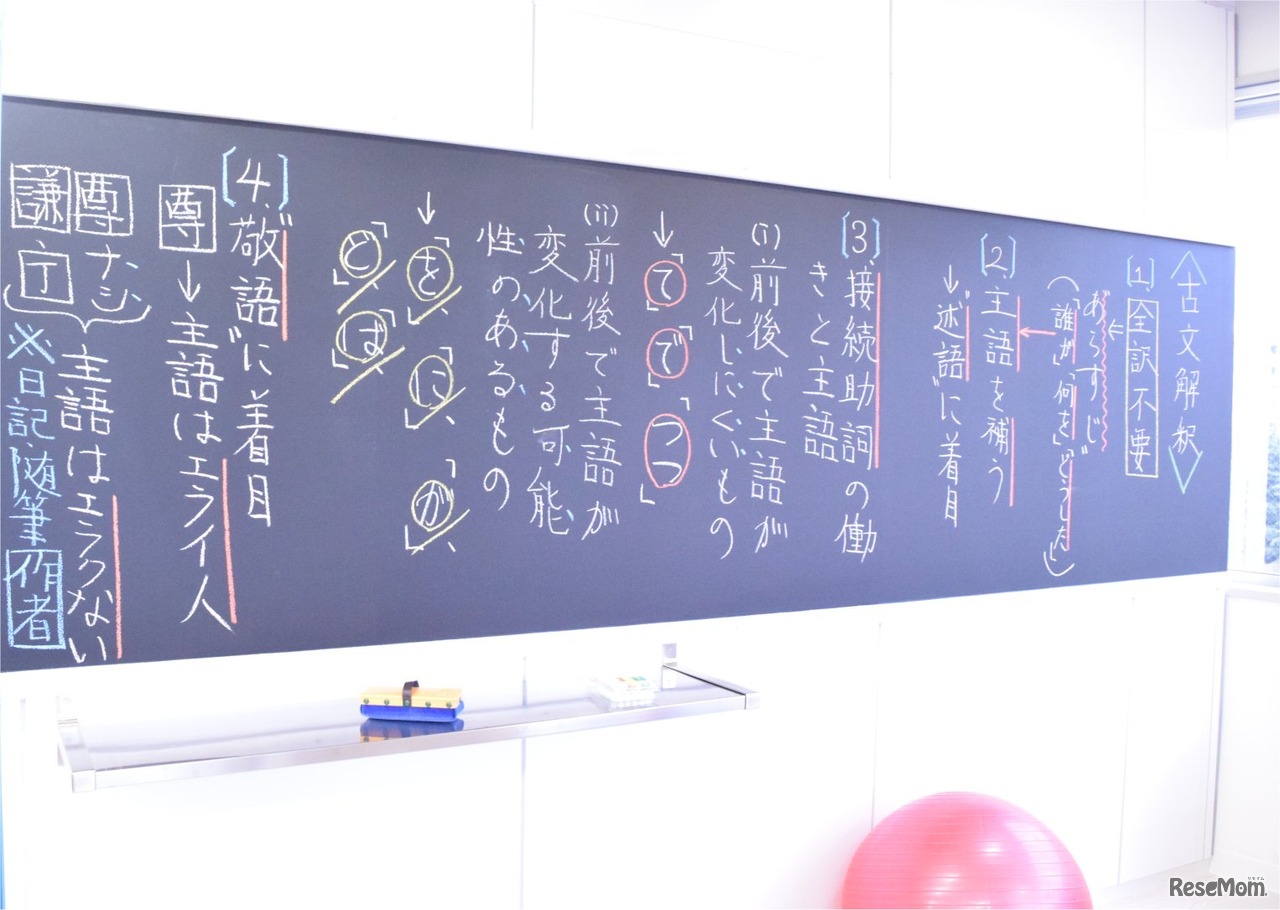 〈古文解釈〉
[1.]全訳不要
⇐あらすじ
(「誰が」「何を」「どうした」)
[2.]主語を補う
→"述語"に着目
[3.]接続助詞の働
きと主語
(i)前後で主語が
変化しにくいもの
→「て」「で」「つつ」
(ii)前後で主語が
変化する可能
性のあるもの
→「を」「に」「が」
「ど」「ば」
[4.]"敬語"に着目
尊→主語はエライ人
尊ナシ
謙丁
主語はエラクない
※日記・随筆作者
ReseMom
リセマム